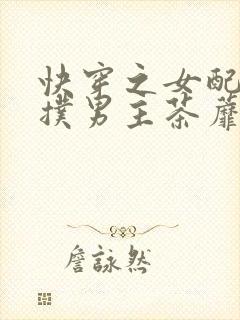 快穿之女配
撲男主荼蘼
詹詠然